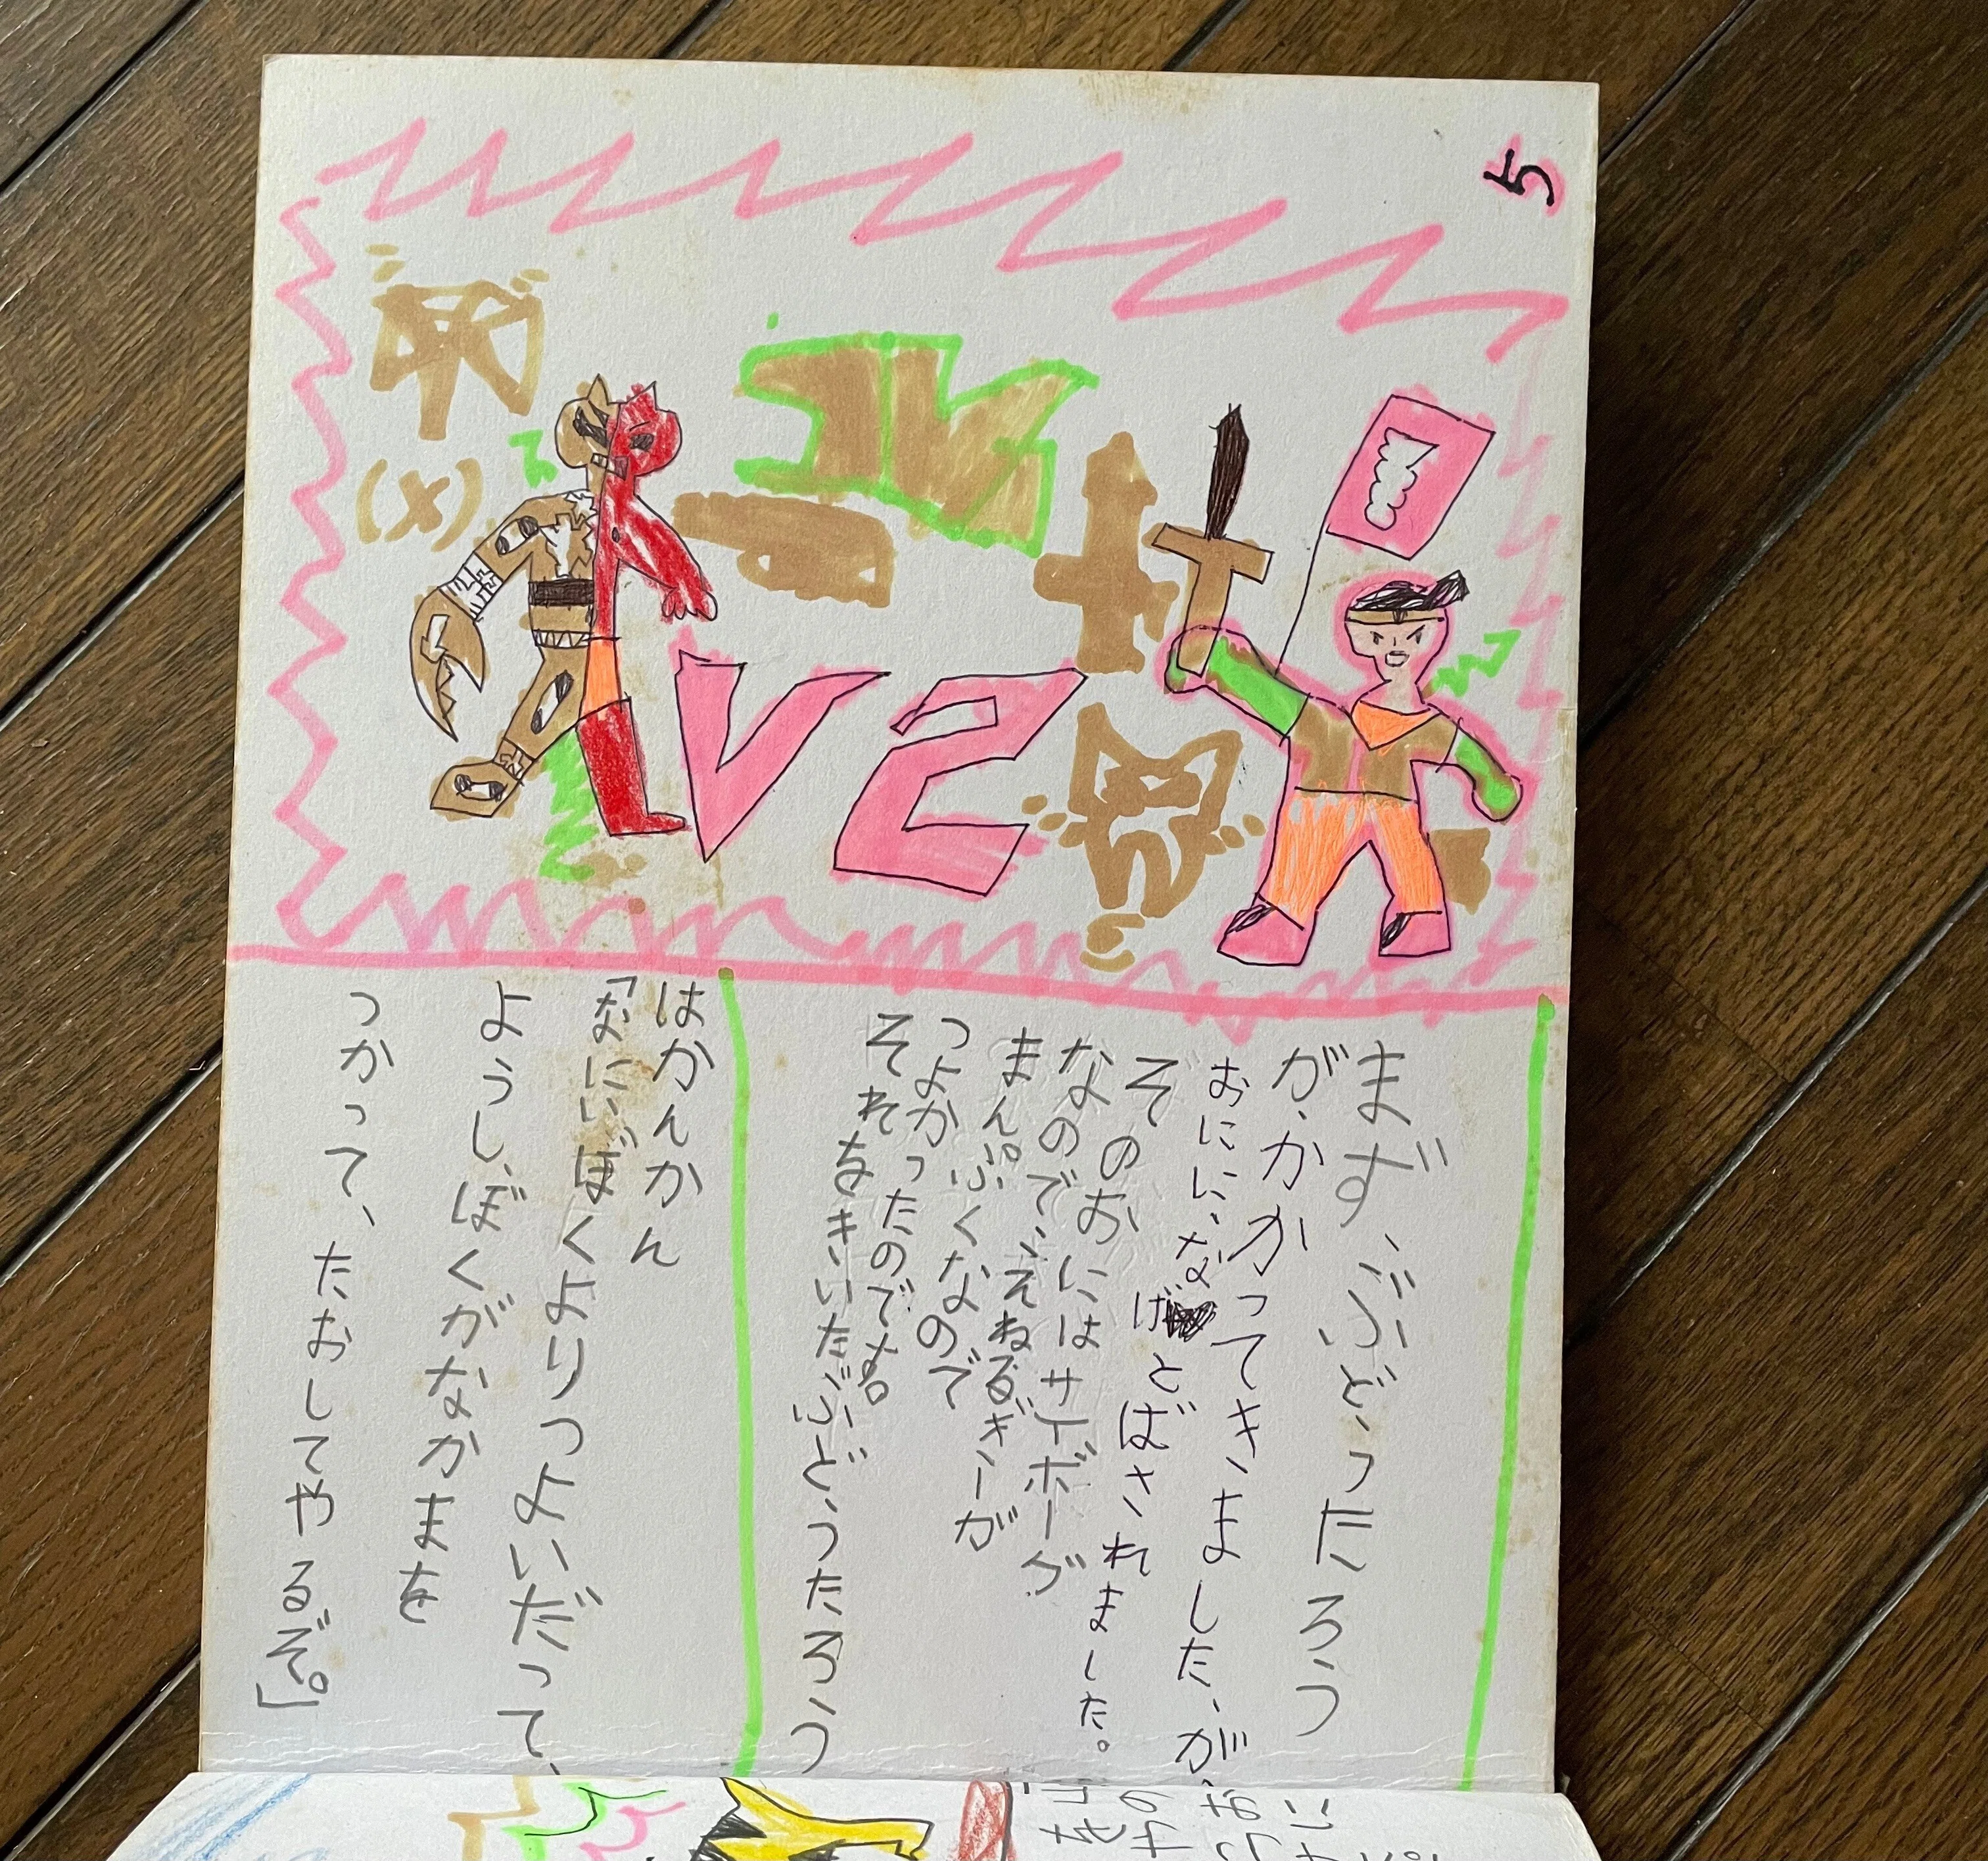 5
V2
(x)
まず、ぶどうたろう
が、かかってきましたが、
おにに、なげとばされました。
そのおにはサイボーグ
なので、えねるぎーが
まんぷくなので
つよかったのです。
それをきいたぶどうたろう
はかんかん
「なにい！ぼくよりつよいだって、
ようし、ぼくがなかまを
つかって、たおしてやるぞ。」